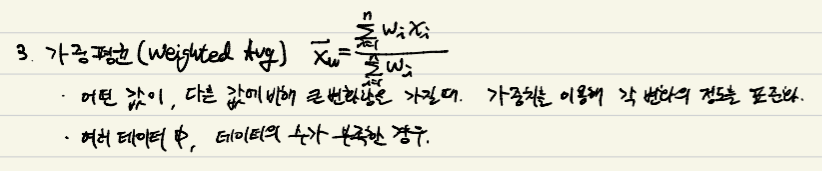 3. 가중평균 (Weighted Avg) x̄w = Σ(i=1→n) wᵢxᵢ / Σ(i=1→n) wᵢ
· 어떤 값이, 다른 값에 비해 큰 변화량을 가질 때. 가중치를 이용해 각 변화의 정도를 표준화.
· 여러 데이터 中, 데이터의 수가 부족한 경우.